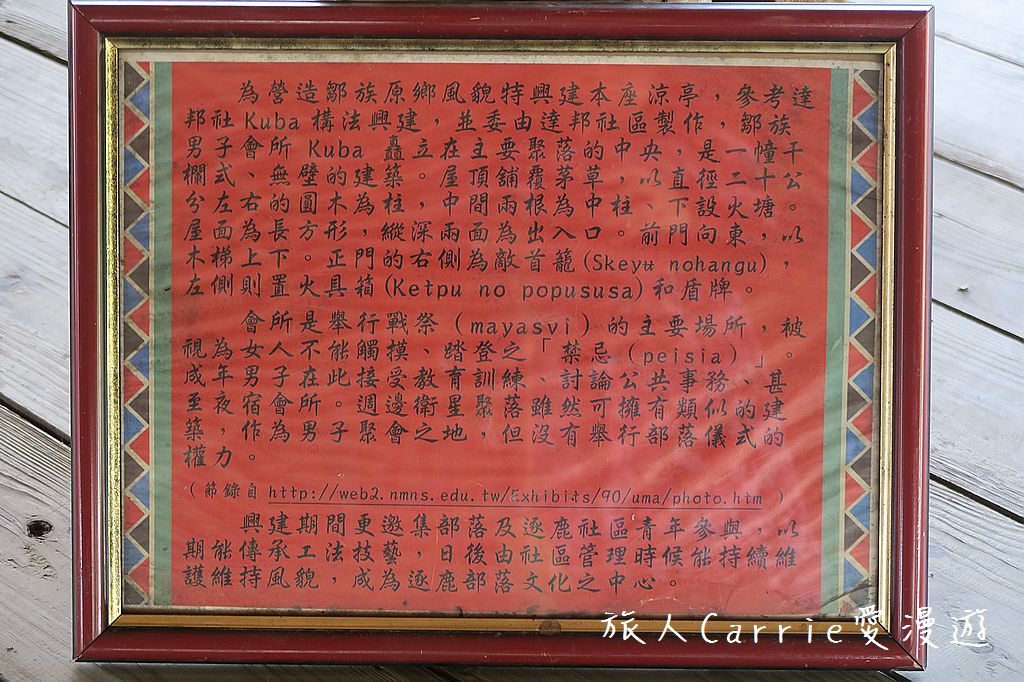 為營造鄒族原鄉風貌特興建本座涼亭，參考達
邦社Kuba構法興建，並委由達邦社區製作，鄒族
男子會所 Kuba 矗立在主要聚落的中央，是一幢干
欄式、無壁的建築。屋頂舖覆茅草，以直徑二十公
分左右的圓木為柱，中間兩根為中柱、下設火塘。
屋面為長方形，縱深兩面為出入口。前門向東，以
木梯上下。正門的右側為敵首籠(Skeyʉ nohangu)，
左側則置火具箱(Ketpu no popususa)和盾牌。
會所是舉行戰祭（mayasvi）的主要場所，被
視為女人不能觸摸、踏登之「禁忌（peisia）」。
成年男子在此接受教育訓練、討論公共事務、甚
至夜宿會所。週邊衛星聚落雖然可擁有類似的建
築，作為男子聚會之地，但沒有舉行部落儀式的
權力。
（節錄自http://web2.nmns.edu.tw/Exhibits/90/uma/photo.htm）
興建期間更邀集部落及逐鹿社區青年參與，以
期能傳承工法技藝，日後由社區管理時候能持續維
護維持風貌，成為逐鹿部落文化之中心。
旅人Carrie愛漫遊